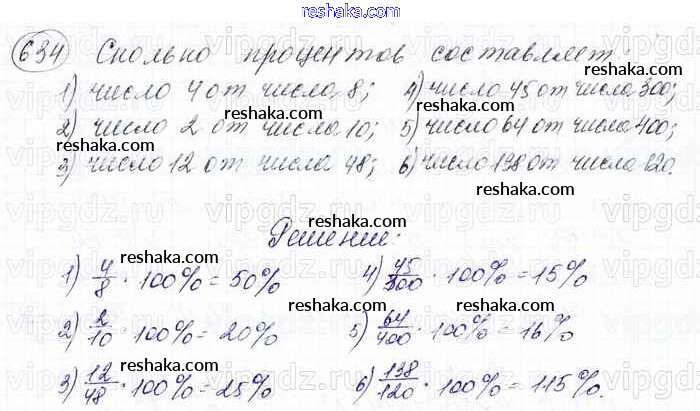 reshaka.com
634 Сколько процентов составляет:
reshaka.com
1) число 4 от числа 8; 4) число 45 от числа 300;
reshaka.com
2) число 2 от числа 10; 5) число 64 от числа 400;
reshaka.com
3) число 12 от числа 48; 6) число 138 от числа 120.
reshaka.com
reshaka.com
Решение:
reshaka.com reshaka.com
1) 4/8 · 100% = 50% 4) 45/300 · 100% = 15%
reshaka.com reshaka.com
2) 2/10 · 100% = 20% 5) 64/400 · 100% = 16%
reshaka.com reshaka.com
3) 12/48 · 100% = 25% 6) 138/120 · 100% = 115%.
reshaka.com